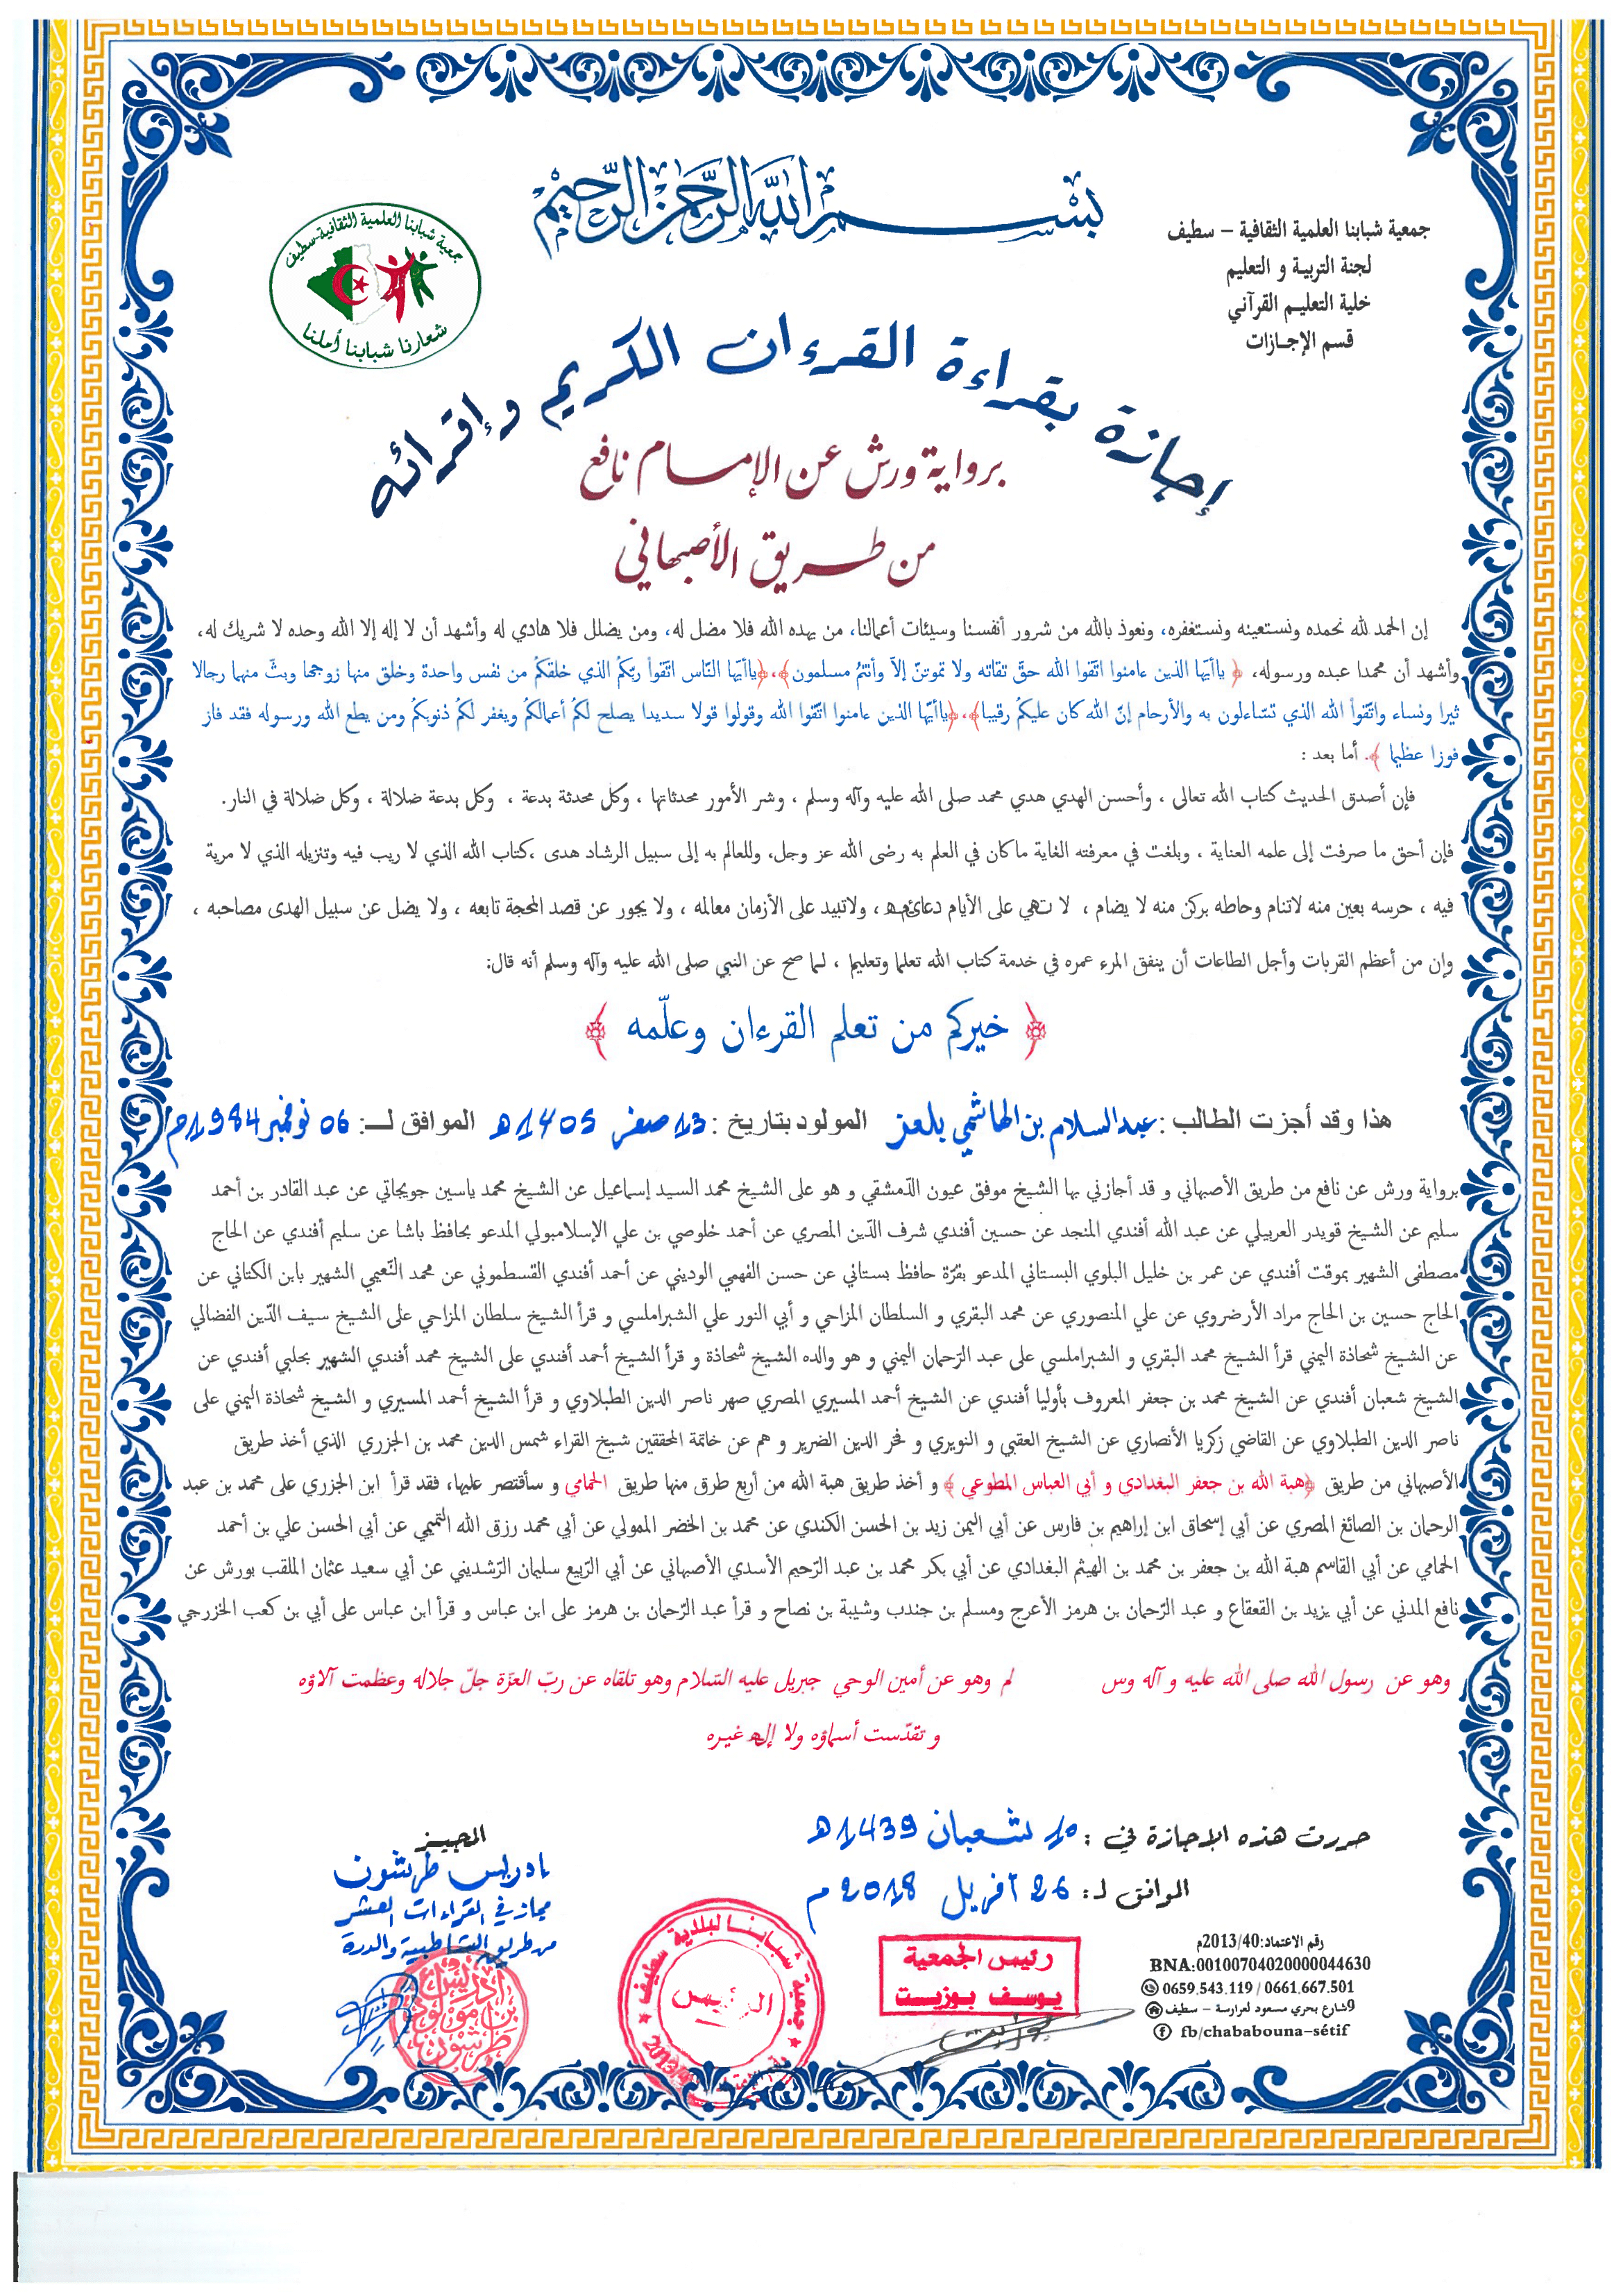 بسم الله الرحمن الرحيم
جمعية شبابنا العلمية الثقافية – سطيف
لجنة التربية و التعليم
خلية التعليم القرآني
قسم الإجازات
جمعية شبابنا العلمية الثقافية-سطيف
شعارنا شبابنا أملنا
إجازة بقراءة القرءان الكريم وإقرائه
برواية ورش عن الإمام نافع
من طريق الأصبهاني
إن الحمد لله نحمده ونستعينه ونستغفره، ونعوذ بالله من شرور أنفسنا وسيئات أعمالنا، من يهده الله فلا مضل له، ومن يضلل فلا هادي له وأشهد أن لا إله إلا الله وحده لا شريك له،
وأشهد أن محمدا عبده ورسوله، ﴿ ياأيّها الذين ءامنوا اتّقوا الله حقّ تقاته ولا تموتنّ إلاّ وأنتمُ مسلمون﴾،﴿ياأيّها النّاس اتّقواْ ربّكمُ الذي خلقكمْ من نفس واحدة وخلق منها زوجها وبثّ منهما رجالا
ثيرا ونساء واتّقواْ الله الذي تسّاءلون به والأرحام إنّ الله كان عليكمْ رقيبا﴾،﴿ياأيّها الذين ءامنوا اتّقوا الله وقولوا قولا سديدا يصلح لكمُ أعمالكمْ ويغفر لكمْ ذنوبكمْ ومن يطع الله ورسوله فقد فاز
فوزا عظيما ﴾. أما بعد :
فإن أصدق الحديث كتاب الله تعالى ، وأحسن الهدي هدي محمد صلى الله عليه وآله وسلم ، وشر الأمور محدثاتها ، وكل محدثة بدعة ، وكل بدعة ضلالة ، وكل ضلالة في النار.
فإن أحق ما صرفت إلى علمه العناية ، وبلغت في معرفته الغاية ماكان في العلم به رضى الله عز وجل، وللعالم به إلى سبيل الرشاد هدى ،كتاب الله الذي لا ريب فيه وتنزيله الذي لا مرية
فيه ، حرسه بعين منه لاتنام وحاطه بركن منه لا يضام ، لا تهي على الأيام دعائمه ، ولاتبيد على الأزمان معالمه ، ولا يجور عن قصد المحجة تابعه ، ولا يضل عن سبيل الهدى مصاحبه ،
وإن من أعظم القربات وأجل الطاعات أن ينفق المرء عمره في خدمة كتاب الله تعلما وتعليما ، لما صح عن النبي صلى الله عليه وآله وسلم أنه قال:
﴿ خيركم من تعلم القرءان وعلّمه ﴾
هذا وقد أجزت الطالب : عبد السلام بن الهاشمي بلعز المولود بتاريخ : 13 صفر 1405 هـ الموافق لـ: 06 نوفمبر 1984م
برواية ورش عن نافع من طريق الأصبهاني و قد أجازني بها الشيخ موفق عيون الدّمشقي و هو على الشيخ محمد السيد إسماعيل عن الشيخ محمد ياسين جويجاتي عن عبد القادر بن أحمد
سليم عن الشيخ قويدر العربيلي عن عبد الله أفندي المنجد عن حسين أفندي شرف الدّين المصري عن أحمد خلوصي بن علي الإسلامبولي المدعو بحافظ باشا عن سليم أفندي عن الحاج
مصطفى الشهير بموقت أفندي عن عمر بن خليل البلوي البستاني المدعو بقرّة حافظ بستاني عن حسن الفهمي الوديني عن أحمد أفندي القسطموني عن محمد النّعيمي الشهير بابن الكتاني عن
الحاج حسين بن الحاج مراد الأرضروي عن علي المنصوري عن محمد البقري و السلطان المزاحي و أبي النور علي الشبراملسي و قرأ الشيخ سلطان المزاحي على الشيخ سيف الدّين الفضالي
عن الشيخ شحاذة اليمني قرأ الشيخ محمد البقري و الشبراملسي على عبد الرّحمان اليمني و هو والده الشيخ شحاذة و قرأ الشيخ أحمد أفندي على الشيخ محمد أفندي الشهير بحلبي أفندي عن
الشيخ شعبان أفندي عن الشيخ محمد بن جعفر المعروف بأوليا أفندي عن الشيخ أحمد المسيري المصري صهر ناصر الدين الطبلاوي و قرأ الشيخ أحمد المسيري و الشيخ شحاذة اليمني على
ناصر الدين الطبلاوي عن القاضي زكريا الأنصاري عن الشيخ العقبي و النويري و فخر الدين الضرير و هم عن خاتمة المحققين شيخ القراء شمس الدين محمد بن الجزري الذي أخذ طريق
الأصبهاني من طريق ﴿هبة الله بن جعفر البغدادي و أبي العباس المطوعي ﴾ و أخذ طريق هبة الله من أربع طرق منها طريق الحمامي و سأقتصر عليها، فقد قرأ ابن الجزري على محمد بن عبد
الرحمان بن الصائغ المصري عن أبي إسحاق ابن إراهيم بن فارس عن أبي اليمن زيد بن الحسن الكندي عن محمد بن الخضر الممولي عن أبي محمد رزق الله التميمي عن أبي الحسن علي بن أحمد
الحمامي عن أبي القاسم هبة الله بن جعفر بن محمد بن الهيثم البغدادي عن أبي بكر محمد بن عبد الرّحيم الأسدي الأصبهاني عن أبي الرّبيع سليمان الرّشديني عن أبي سعيد عثمان الملقب بورش عن
نافع المدني عن أبي يزيد بن القعقاع و عبد الرّحمان بن هرمز الأعرج ومسلم بن جندب وشيبة بن نصاح و قرأ عبد الرّحمان بن هرمز على ابن عباس و قرأ ابن عباس على أبي بن كعب الخزرجي
وهو عن رسول الله صلى الله عليه و آله وس لم وهو عن أمين الوحي جبريل عليه السّلام وهو تلقاه عن ربّ العزّة جلّ جلاله وعظمت آلاؤه
و تقدّست أسماؤه ولا إله غيره
حررت هذه الإجازة في : 10 شعبان 1439 هـ
الموافق لـ: 26 أفريل 2018 م
المجيز
إدريس طرشون
مجاز في القراءات العشر
من طريق الشاطبية والدرة
إدريس بن مولود طرشون
جمعية شبابنا لبلدية سطيف
الرئيس
رئيس الجمعية
يوسف بوزيت
رقم الاعتماد:2013/40م
BNA:00100704020000044630
0659.543.119 / 0661.667.501
9شارع بحري مسعود لعرارسة – سطيف
fb/chababouna-sétif